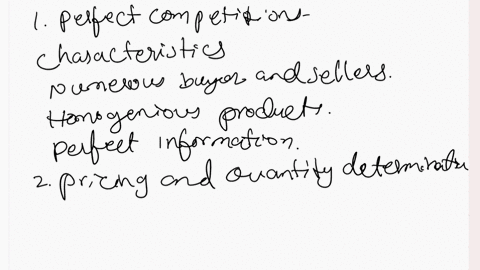 1. perfect competitions-
characteristics
Numerous buyer and sellers.
Homogenious products.
perfect information.
2. pricing and quantity determinate